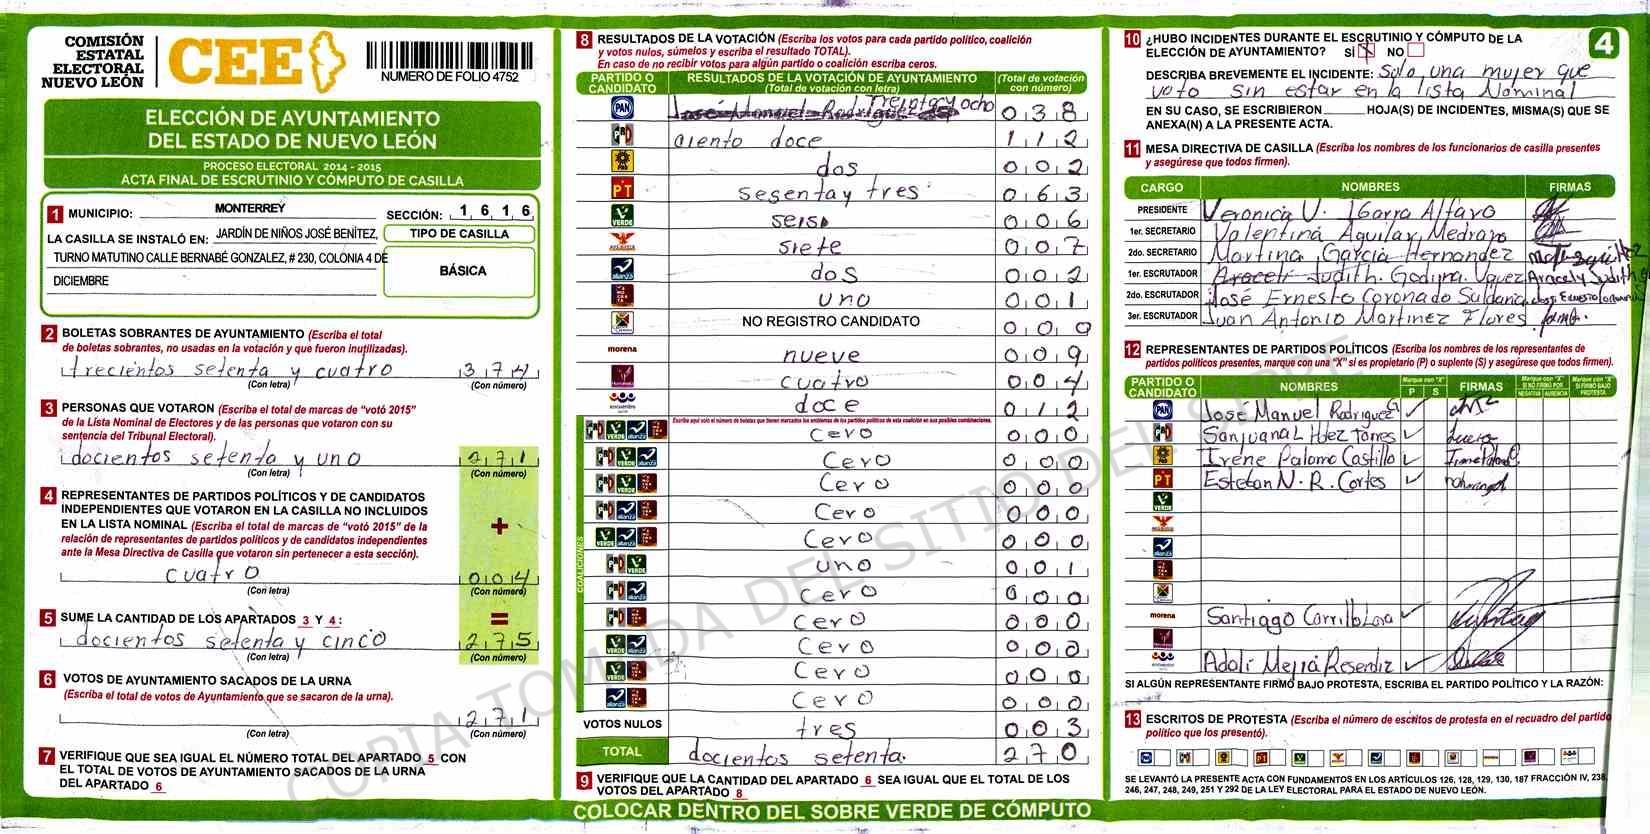 COMISIÓN
ESTATAL
ELECTORAL
NUEVO LEÓN
CEE
NUMERO DE FOLIO 4752
ELECCIÓN DE AYUNTAMIENTO
DEL ESTADO DE NUEVO LEÓN
PROCESO ELECTORAL 2014 - 2015
ACTA FINAL DE ESCRUTINIO Y CÓMPUTO DE CASILLA
1 MUNICIPIO: MONTERREY SECCIÓN: 1 6 1 6
LA CASILLA SE INSTALÓ EN: JARDÍN DE NIÑOS JOSÉ BENÍTEZ,
TURNO MATUTINO CALLE BERNABÉ GONZALEZ, # 230, COLONIA 4 DE
DICIEMBRE
TIPO DE CASILLA
BÁSICA
2 BOLETAS SOBRANTES DE AYUNTAMIENTO (Escriba el total
de boletas sobrantes, no usadas en la votación y que fueron inutilizadas).
trecientos setenta y cuatro 3 7 4
(Con letra) (Con número)
3 PERSONAS QUE VOTARON (Escriba el total de marcas de "votó 2015"
de la Lista Nominal de Electores y de las personas que votaron con su
sentencia del Tribunal Electoral).
docientos setenta y uno 2 7 1
(Con letra) (Con número)
4 REPRESENTANTES DE PARTIDOS POLÍTICOS Y DE CANDIDATOS
INDEPENDIENTES QUE VOTARON EN LA CASILLA NO INCLUIDOS
EN LA LISTA NOMINAL (Escriba el total de marcas de "votó 2015" de la
relación de representantes de partidos políticos y de candidatos independientes
ante la Mesa Directiva de Casilla que votaron sin pertenecer a esta sección).
+
cuatro 0 0 4
(Con letra) (Con número)
5 SUME LA CANTIDAD DE LOS APARTADOS 3 Y 4: =
docientos setenta y cinco 2 7 5
(Con letra) (Con número)
6 VOTOS DE AYUNTAMIENTO SACADOS DE LA URNA
(Escriba el total de votos de Ayuntamiento que se sacaron de la urna).
2 7 1
(Con letra) (Con número)
7 VERIFIQUE QUE SEA IGUAL EL NÚMERO TOTAL DEL APARTADO 5 CON
EL TOTAL DE VOTOS DE AYUNTAMIENTO SACADOS DE LA URNA
DEL APARTADO 6
8 RESULTADOS DE LA VOTACIÓN (Escriba los votos para cada partido político, coalición
y votos nulos, súmelos y escriba el resultado TOTAL).
En caso de no recibir votos para algún partido o coalición escriba ceros.
PARTIDO O CANDIDATO RESULTADOS DE LA VOTACIÓN DE AYUNTAMIENTO (Total de votación con letra) (Total de votación con número)
PAN José Manuel Rodriguez Treinta y ocho 0 3 8
PRD ciento doce 1 1 2
PRD dos 0 0 2
PT sesenta y tres 0 6 3
VERDE seis 0 0 6
siete 0 0 7
alianza dos 0 0 2
uno 0 0 1
NO REGISTRO CANDIDATO 0 0 0
morena nueve 0 0 9
Humanista cuatro 0 0 4
encuentro doce 0 1 2
Escriba aquí solo el número de boletas que tienen marcados los emblemas de los partidos políticos de esta coalición en sus posibles combinaciones.
COALICIONES
cero 0 0 0
Cero 0 0 0
Cero 0 0 0
Cero 0 0 0
Cero 0 0 0
uno 0 0 1
Cero 0 0 0
Cero 0 0 0
Cero 0 0 0
Cero 0 0 0
Cero 0 0 0
VOTOS NULOS tres 0 0 3
TOTAL docientos setenta. 2 7 0
9 VERIFIQUE QUE LA CANTIDAD DEL APARTADO 6 SEA IGUAL QUE EL TOTAL DE LOS
VOTOS DEL APARTADO 8
COLOCAR DENTRO DEL SOBRE VERDE DE CÓMPUTO
10 ¿HUBO INCIDENTES DURANTE EL ESCRUTINIO Y CÓMPUTO DE LA
ELECCIÓN DE AYUNTAMIENTO? SÍ X NO
4
DESCRIBA BREVEMENTE EL INCIDENTE: Solo una mujer que
voto sin estar en la lista Nominal
EN SU CASO, SE ESCRIBIERON HOJA(S) DE INCIDENTES, MISMA(S) QUE SE
ANEXA(N) A LA PRESENTE ACTA.
11 MESA DIRECTIVA DE CASILLA (Escriba los nombres de los funcionarios de casilla presentes
y asegúrese que todos firmen).
CARGO NOMBRES FIRMAS
PRESIDENTE Veronica U. Ibarra Alfaro
1er. SECRETARIO Valentina Aguilar Medrano
2do. SECRETARIO Martina Garcia Hernandez
1er. ESCRUTADOR Araceli Judith Aracely Judith
2do. ESCRUTADOR José Ernesto Coronado Saldana
3er. ESCRUTADOR Juan Antonio Martinez Flores
12 REPRESENTANTES DE PARTIDOS POLÍTICOS (Escriba los nombres de los representantes de
partidos políticos presentes, marque con una "X" si es propietario (P) o suplente (S) y asegúrese que todos firmen).
PARTIDO O CANDIDATO NOMBRES Marque con "X" P S FIRMAS Marque con "X" SI NO FIRMÓ POR NEGATIVA AUSENCIA Marque con "X" SI FIRMÓ BAJO PROTESTA
PAN José Manuel Rodriguez G
Sanjuana L Hdez Torres
Irene Palomo Castillo
PT Esteban N. R. Cortes
VERDE
alianza
morena Santiago Carrillo
encuentro Adali Mejia Resendiz
SI ALGÚN REPRESENTANTE FIRMÓ BAJO PROTESTA, ESCRIBA EL PARTIDO POLÍTICO Y LA RAZÓN:
13 ESCRITOS DE PROTESTA (Escriba el número de escritos de protesta en el recuadro del partido
político que los presentó).
SE LEVANTÓ LA PRESENTE ACTA CON FUNDAMENTOS EN LOS ARTÍCULOS 126, 128, 129, 130, 187 FRACCIÓN IV, 238,
246, 247, 248, 249, 251 Y 292 DE LA LEY ELECTORAL PARA EL ESTADO DE NUEVO LEÓN.
COPIA TOMADA DEL SITIO DEL SIPRE